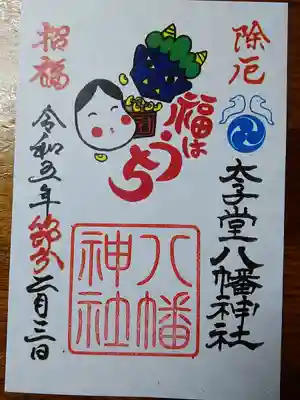 除厄
太子堂八幡神社
福は
うち
八幡
神社
招福
令和五年節分二月三日